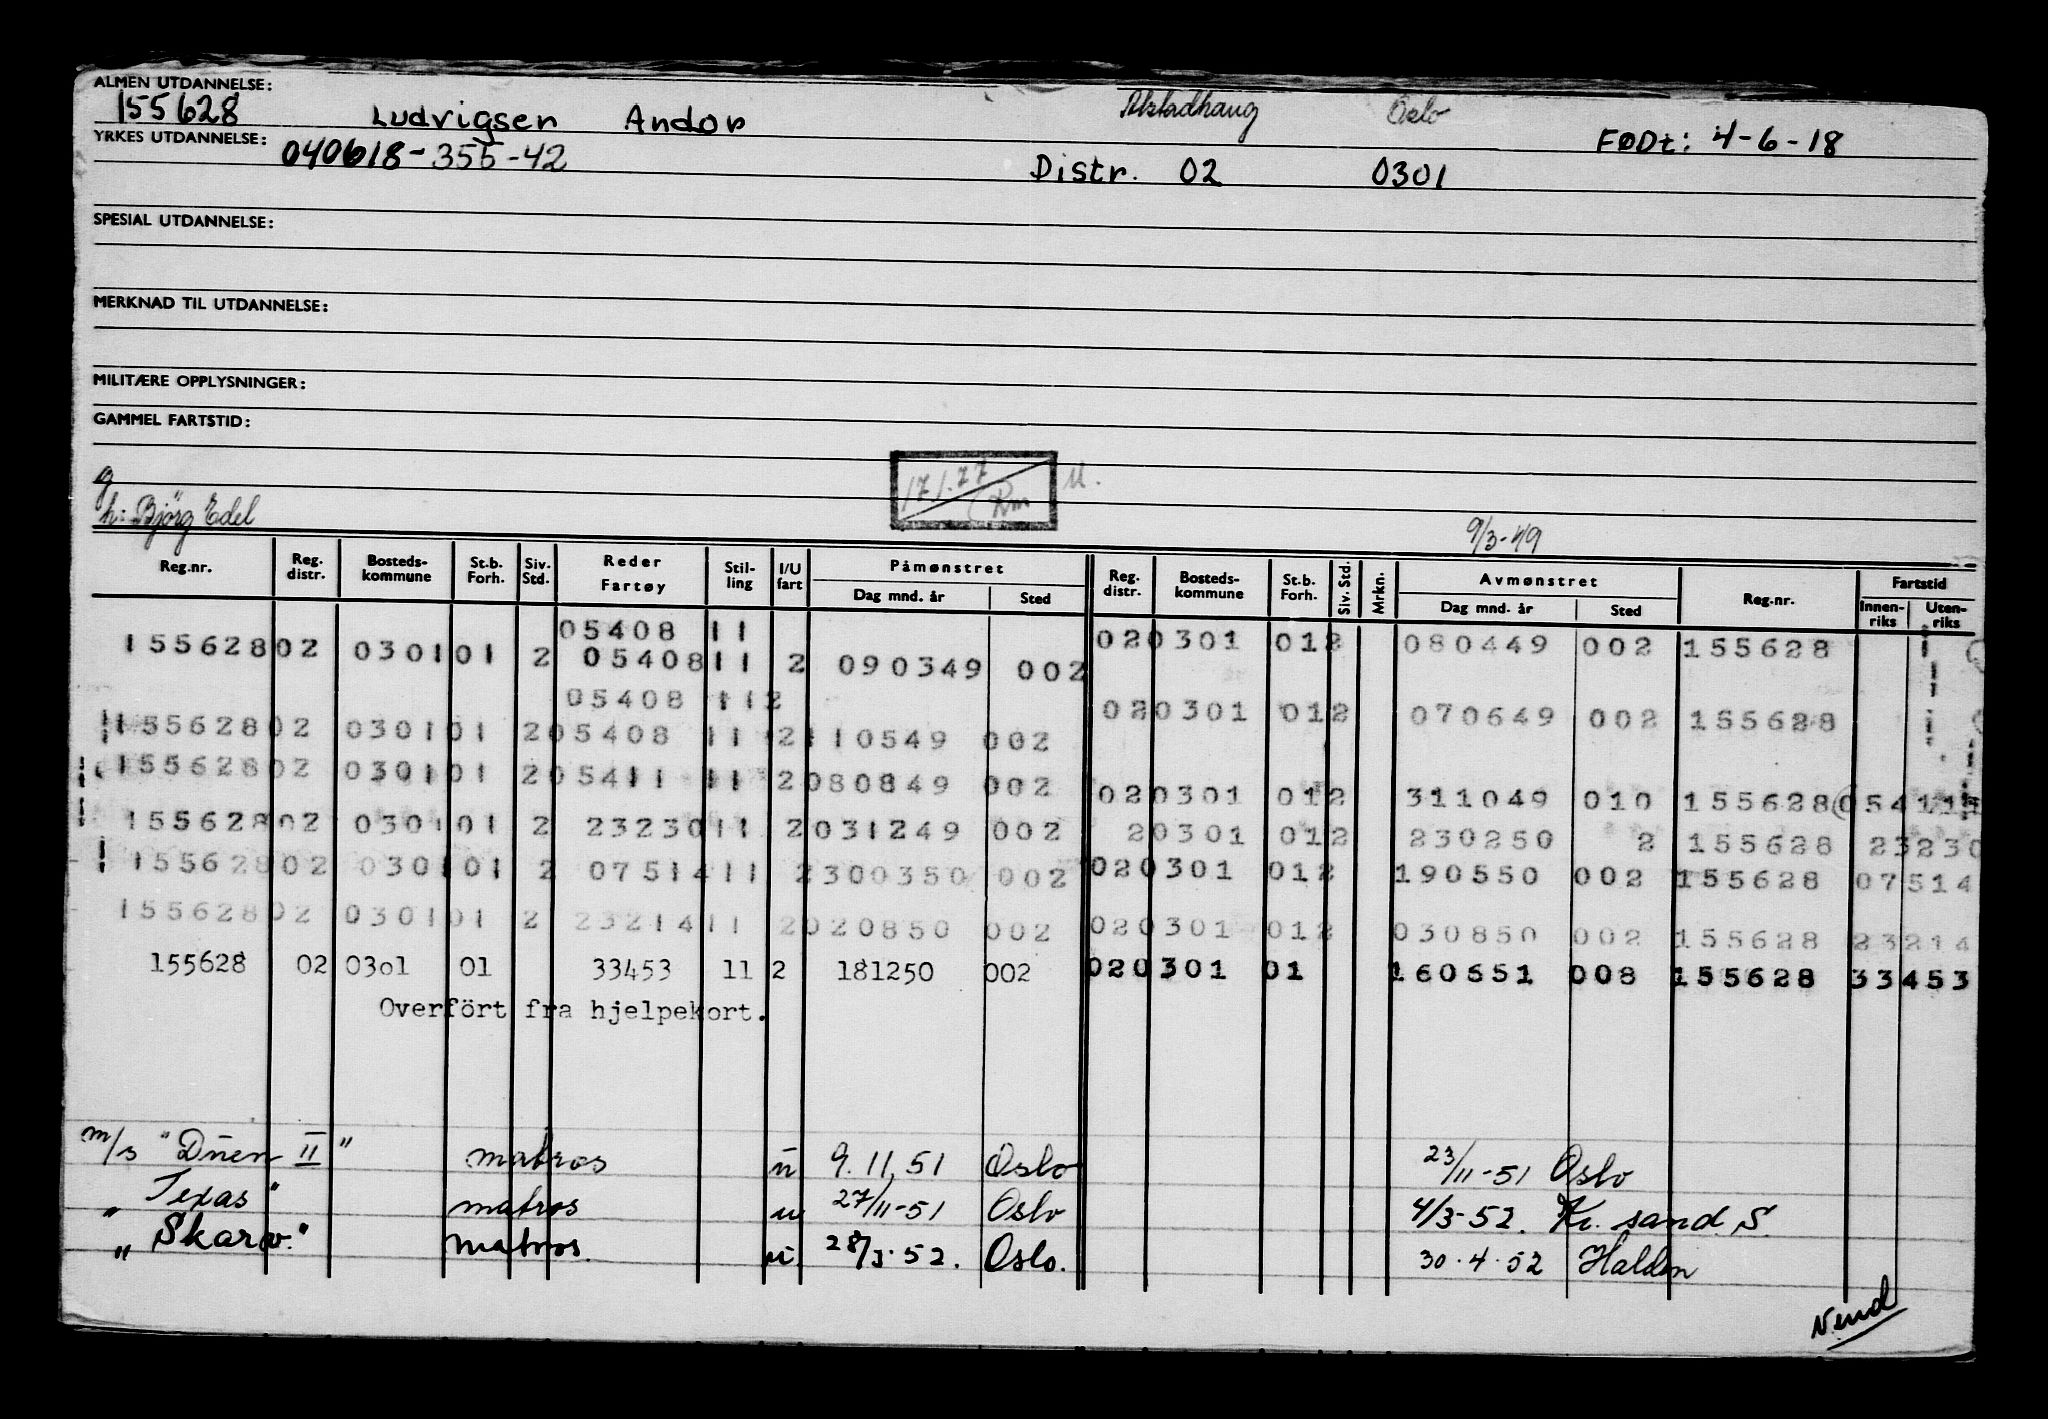 ALMEN UTDANNELSE:
155628 Ludvigsen Andor Alstadhaug Oslo
YRKES UTDANNELSE: FØDt: 4-6-18
040618-355-42 Distr. 02 0301
SPESIAL UTDANNELSE:
MERKNAD TIL UTDANNELSE:
MILITÆRE OPPLYSNINGER:
GAMMEL FARTSTID:
g
h: Bjørg Edel
9/3-49
Reg.nr. Reg. distr. Bosteds-kommune St.b. Forh. Siv. Std. Reder Fartøy Stil-ling I/U fart Påmønstret Dag mnd. år Sted Reg. distr. Bosteds-kommune St.b. Forh. Siv. Std. Mrkn. Avmønstret Dag mnd. år Sted Reg.nr. Fartstid Innen-riks Uten-riks
05408 11
155628 02 0301 01 2 05408 11 2 090349 002 02 0301 01 2 080449 002 155628
05408 11 2
155628 02 0301 01 2 05408 11 2 110549 002 02 0301 01 2 070649 002 155628
155628 02 0301 01 2 05411 11 2 080849 002 02 0301 01 2 311049 010 155628 05411
155628 02 0301 01 2 23230 11 2 031249 002 2 0301 01 2 230250 2 155628 23230
155628 02 0301 01 2 07514 11 2 300350 002 02 0301 01 2 190550 002 155628 07514
155628 02 0301 01 2 23214 11 2 020850 002 02 0301 01 2 030850 002 155628 23214
155628 02 03o1 01 33453 11 2 181250 002 02 0301 01 160651 008 155628 33453
Overfört fra hjelpekort.
m/s "Duen II" matros u 9.11,51 Oslo 23/11-51 Oslo
" Texas" matros u 27/11-51 Oslo 4/3-52. Kr. sand. S.
" Skarv." matros. u. 28/3.52. Oslo. 30.4.52 Halden